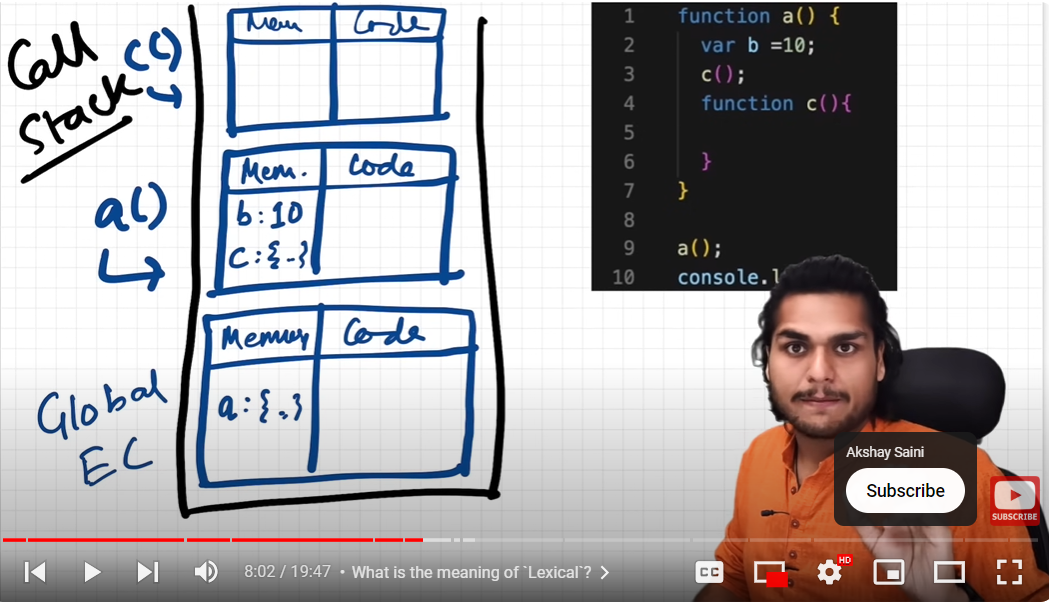 Call
Stack
c()
Mem
Code
a()
Mem.
Code
b:10
c:{..}
Global
EC
Memory
Code
a:{..}
1 function a() {
2 var b =10;
3 c();
4 function c(){
5
6 }
7 }
8
9 a();
10 console.l
Akshay Saini
Subscribe
SUBSCRIBE
8:02 / 19:47 • What is the meaning of `Lexical`? >
CC
HD